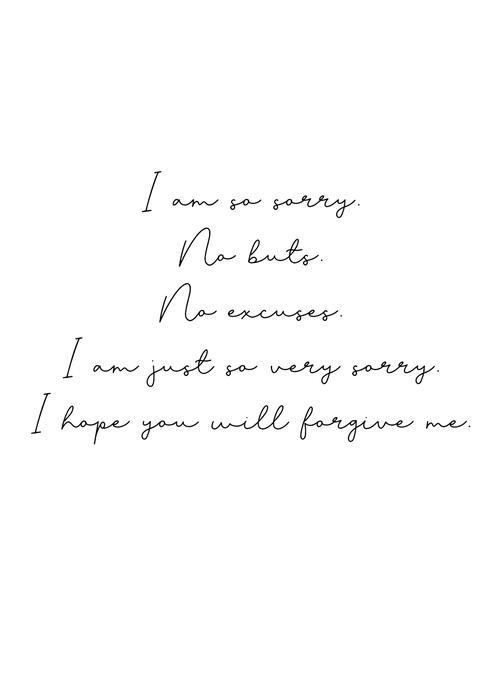 I am so sorry.
No buts.
No excuses.
I am just so very sorry.
I hope you will forgive me.